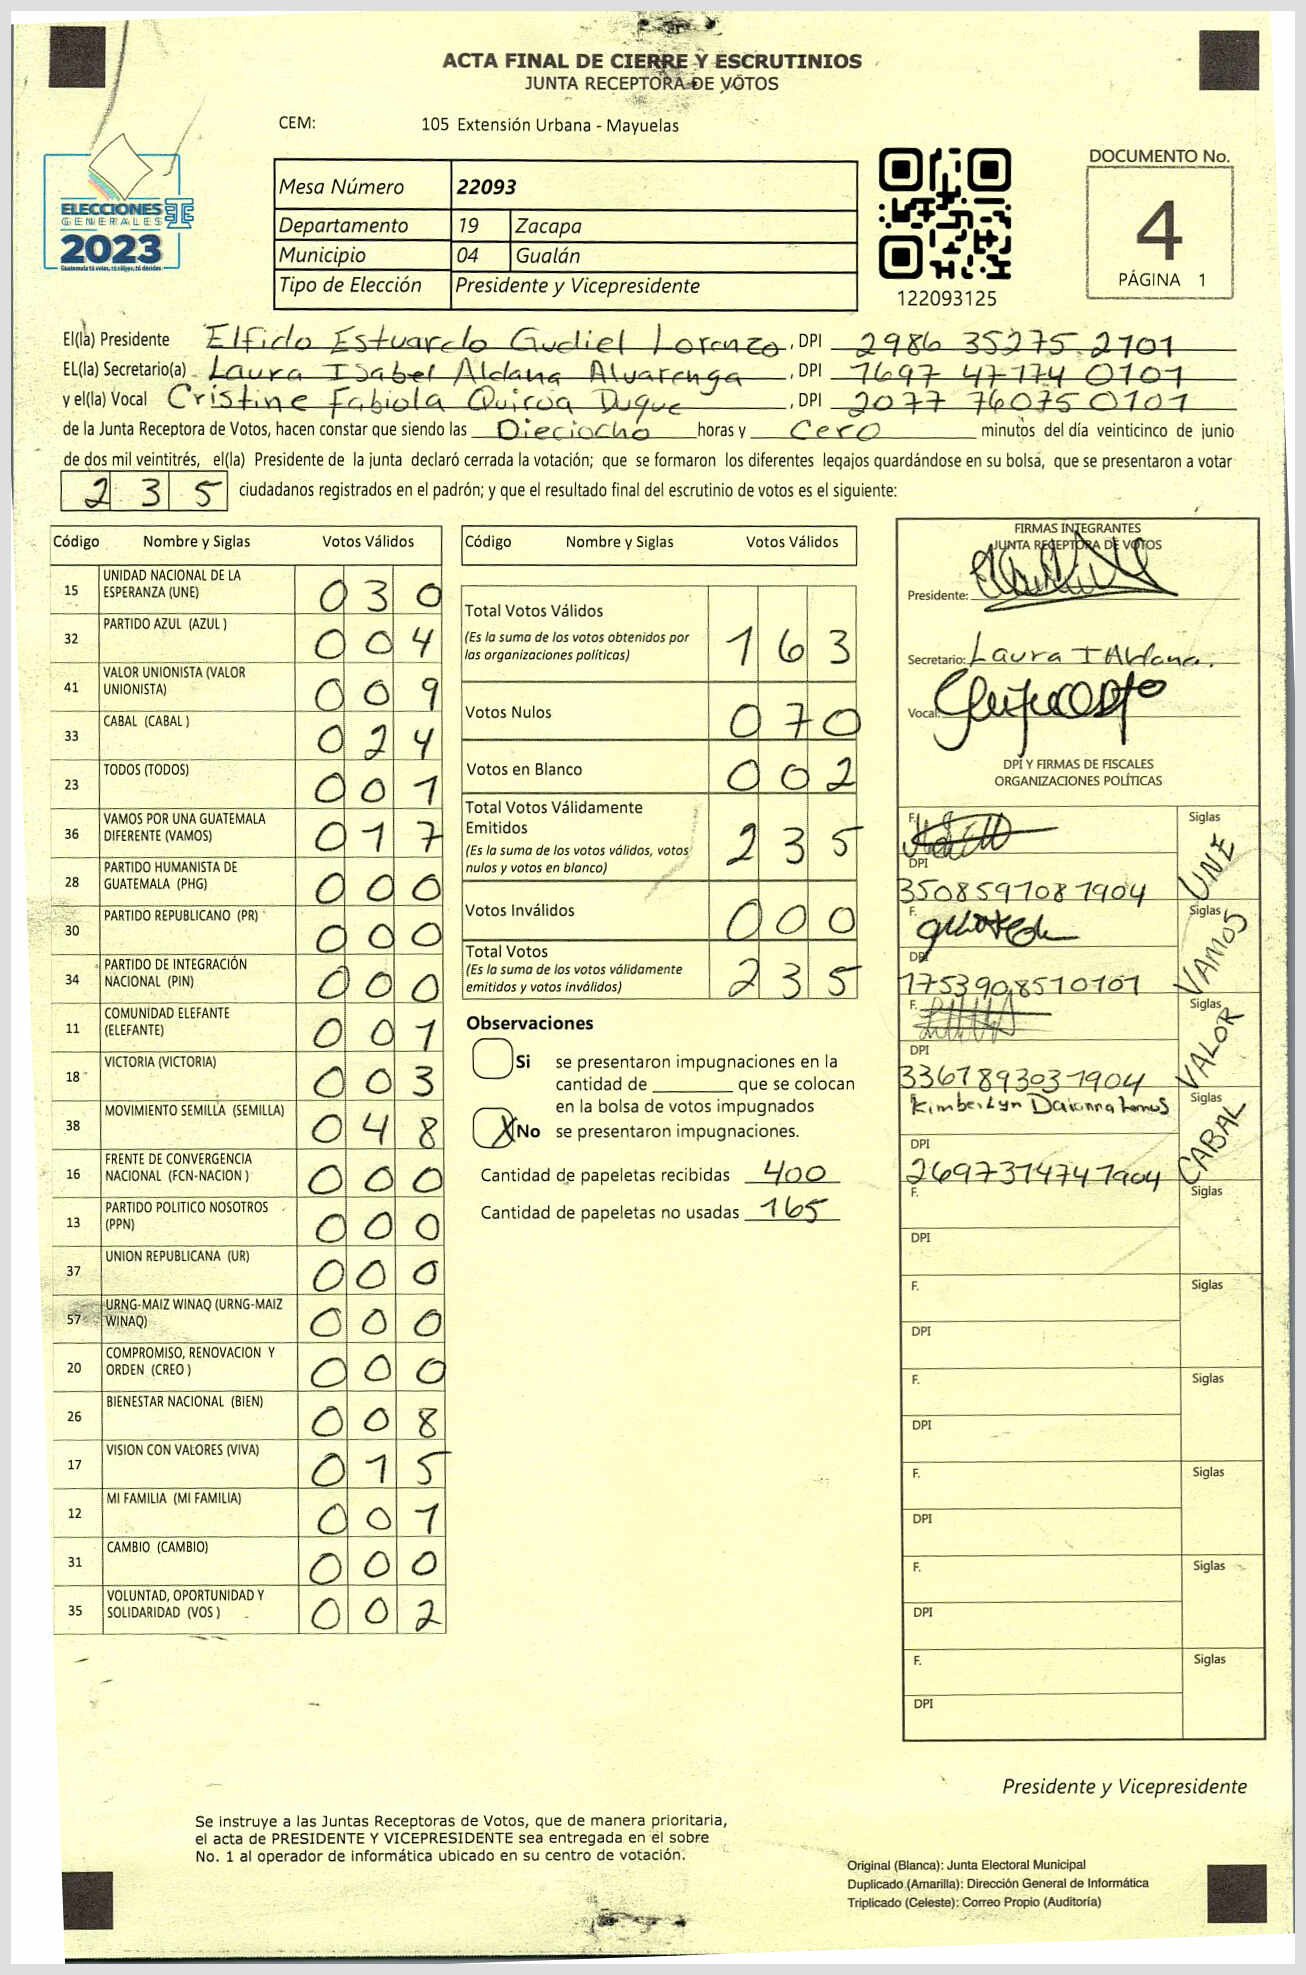 ACTA FINAL DE CIERRE Y ESCRUTINIOS
JUNTA RECEPTORA DE VOTOS
CEM: 105 Extensión Urbana - Mayuelas
ELECCIONES
GENERALES
2023
Guatemala tú votas, tú eliges, tú decides
Mesa Número 22093
Departamento 19 Zacapa
Municipio 04 Gualán
Tipo de Elección Presidente y Vicepresidente
122093125
DOCUMENTO No.
4
PÁGINA 1
El(la) Presidente Elfido Estuardo Gudiel Lorenzo, DPI 2986 35275 2101
EL(la) Secretario(a) Laura Isabel Aldana Alvarenga, DPI 1697 47174 0101
y el(la) Vocal Cristine Fabiola Quiroa Duque, DPI 2077 76075 0101
de la Junta Receptora de Votos, hacen constar que siendo las Dieciocho horas y Cero minutos del día veinticinco de junio
de dos mil veintitrés, el(la) Presidente de la junta declaró cerrada la votación; que se formaron los diferentes legajos guardándose en su bolsa, que se presentaron a votar
2 3 5 ciudadanos registrados en el padrón; y que el resultado final del escrutinio de votos es el siguiente:
Código Nombre y Siglas Votos Válidos
15 UNIDAD NACIONAL DE LA ESPERANZA (UNE) 0 3 0
32 PARTIDO AZUL (AZUL ) 0 0 4
41 VALOR UNIONISTA (VALOR UNIONISTA) 0 0 9
33 CABAL (CABAL ) 0 2 4
23 TODOS (TODOS) 0 0 1
36 VAMOS POR UNA GUATEMALA DIFERENTE (VAMOS) 0 1 7
28 PARTIDO HUMANISTA DE GUATEMALA (PHG) 0 0 0
30 PARTIDO REPUBLICANO (PR) 0 0 0
34 PARTIDO DE INTEGRACIÓN NACIONAL (PIN) 0 0 0
11 COMUNIDAD ELEFANTE (ELEFANTE) 0 0 1
18 VICTORIA (VICTORIA) 0 0 3
38 MOVIMIENTO SEMILLA (SEMILLA) 0 4 8
16 FRENTE DE CONVERGENCIA NACIONAL (FCN-NACION ) 0 0 0
13 PARTIDO POLITICO NOSOTROS (PPN) 0 0 0
37 UNION REPUBLICANA (UR) 0 0 0
57 URNG-MAIZ WINAQ (URNG-MAIZ WINAQ) 0 0 0
20 COMPROMISO, RENOVACION Y ORDEN (CREO ) 0 0 0
26 BIENESTAR NACIONAL (BIEN) 0 0 8
17 VISION CON VALORES (VIVA) 0 1 5
12 MI FAMILIA (MI FAMILIA) 0 0 1
31 CAMBIO (CAMBIO) 0 0 0
35 VOLUNTAD, OPORTUNIDAD Y SOLIDARIDAD (VOS ) 0 0 2
Código Nombre y Siglas Votos Válidos
Total Votos Válidos 1 6 3
(Es la suma de los votos obtenidos por
las organizaciones políticas)
Votos Nulos 0 7 0
Votos en Blanco 0 0 2
Total Votos Válidamente
Emitidos 2 3 5
(Es la suma de los votos válidos, votos
nulos y votos en blanco)
Votos Inválidos 0 0 0
Total Votos 2 3 5
(Es la suma de los votos válidamente
emitidos y votos inválidos)
Observaciones
Si se presentaron impugnaciones en la
cantidad de ________ que se colocan
en la bolsa de votos impugnados
X No se presentaron impugnaciones.
Cantidad de papeletas recibidas 400
Cantidad de papeletas no usadas 165
FIRMAS INTEGRANTES
JUNTA RECEPTORA DE VOTOS
Presidente:
Secretario: Laura I Aldana.
Vocal:
DPI Y FIRMAS DE FISCALES
ORGANIZACIONES POLÍTICAS
F. Siglas UNE
DPI
3508597081904
F. Siglas VAMOS
DPI
1753908510101
F. Siglas VALOR
DPI
3361893031904
Kimberlyn Daianna Lemus Siglas CABAL
DPI
2697314741904
F. Siglas
DPI
F. Siglas
DPI
F. Siglas
DPI
F. Siglas
DPI
F. Siglas
DPI
F. Siglas
DPI
Presidente y Vicepresidente
Se instruye a las Juntas Receptoras de Votos, que de manera prioritaria,
el acta de PRESIDENTE Y VICEPRESIDENTE sea entregada en el sobre
No. 1 al operador de informática ubicado en su centro de votación.
Original (Blanca): Junta Electoral Municipal
Duplicado (Amarilla): Dirección General de Informática
Triplicado (Celeste): Correo Propio (Auditoría)